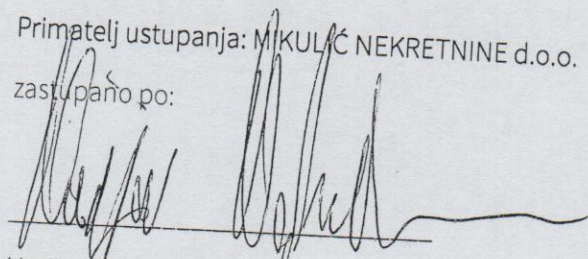 Primatelj ustupanja: MIKULIĆ NEKRETNINE d.o.o.
zastupano po: